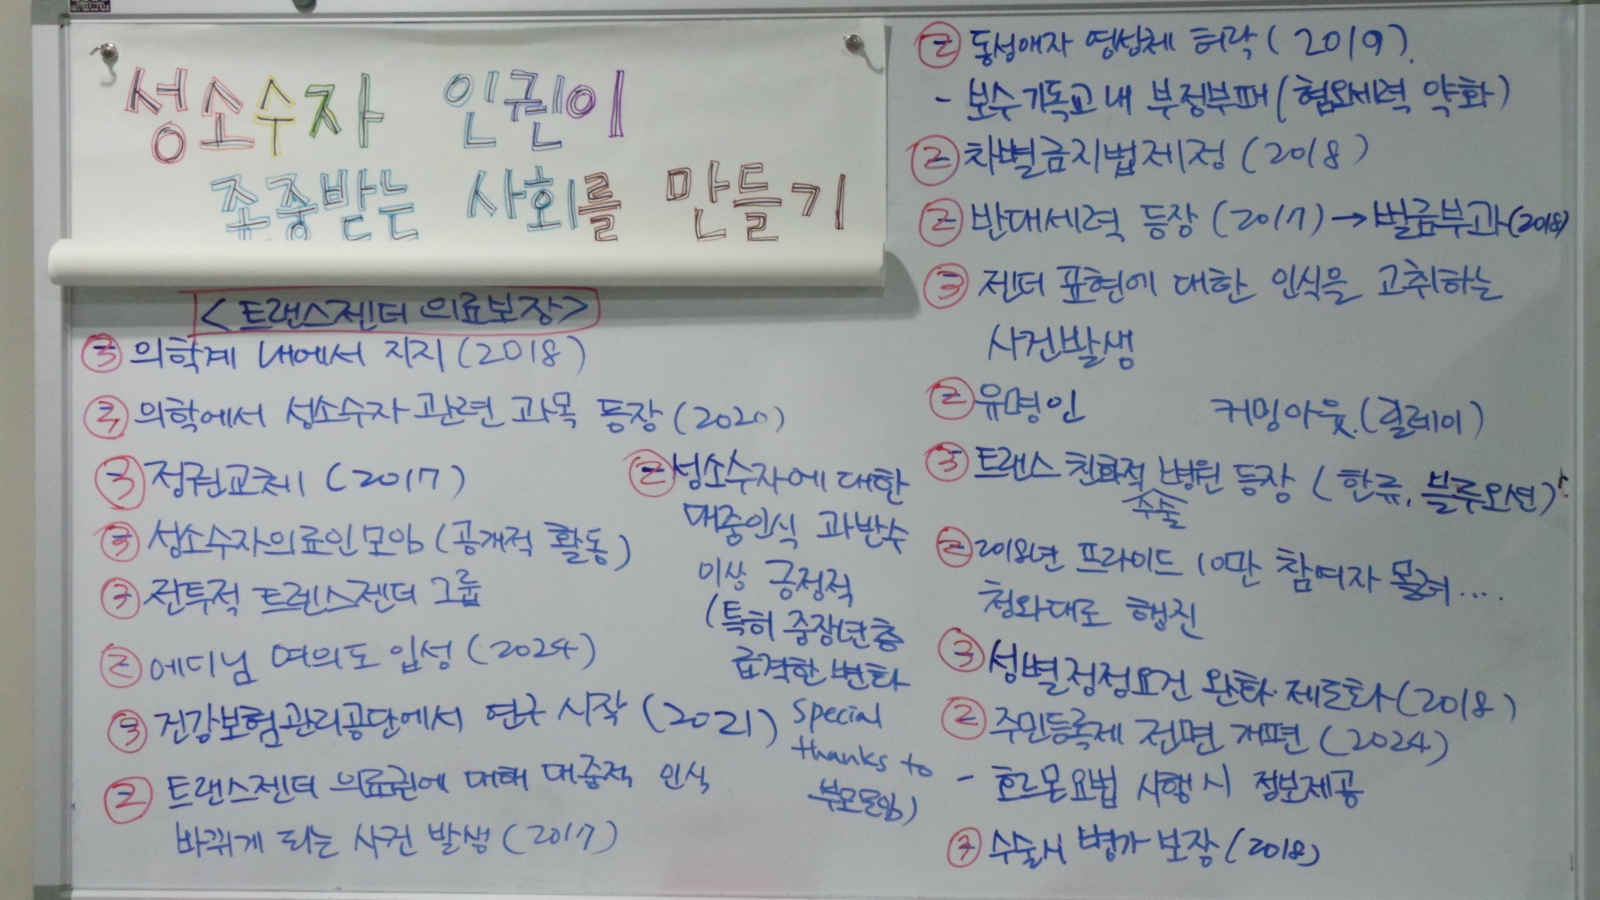 성소수자 인권이
존중받는 사회를 만들기
<트랜스젠더 의료보장>
③ 의학계 내에서 지지(2018)
의학에서 성소수자 관련 과목 등장(2020)
③ 정권교체(2017)
③ 성소수자의료인모임(공개적 활동)
전투적 트렌스젠더 그룹
② 에디님 여의도 입성(2024)
③ 건강보험관리공단에서 연구 시작(2021)
② 트랜스젠더 의료권에 대해 대중적 인식
바뀌게 되는 사건 발생(2017)
② 성소수자에 대한
대중인식 과반수
이상 긍정적
(특히 중장년층
급격한 변화
special
thanks to
부모모임)
② 동성애자 영성체 허락(2019).
- 보수기독교내 부정부패(혐오세력 약화)
② 차별금지법제정(2018)
② 반대세력 등장(2017)→벌금부과(2018)
③ 젠더 표현에 대한 인식을 고취하는
사건발생
② 유명인 커밍아웃.(릴레이)
③ 트랜스 친화적 병원 등장(한류, 블루오션)
수술
② 2018년 프라이드 10만 참여자 몰려....
청와대로 행진
③ 성별정정요건 완화·제도화(2018)
② 주민등록제 전면 개편(2024)
- 호르몬요법 시행시 정보제공
수술시 병가 보장(2018)